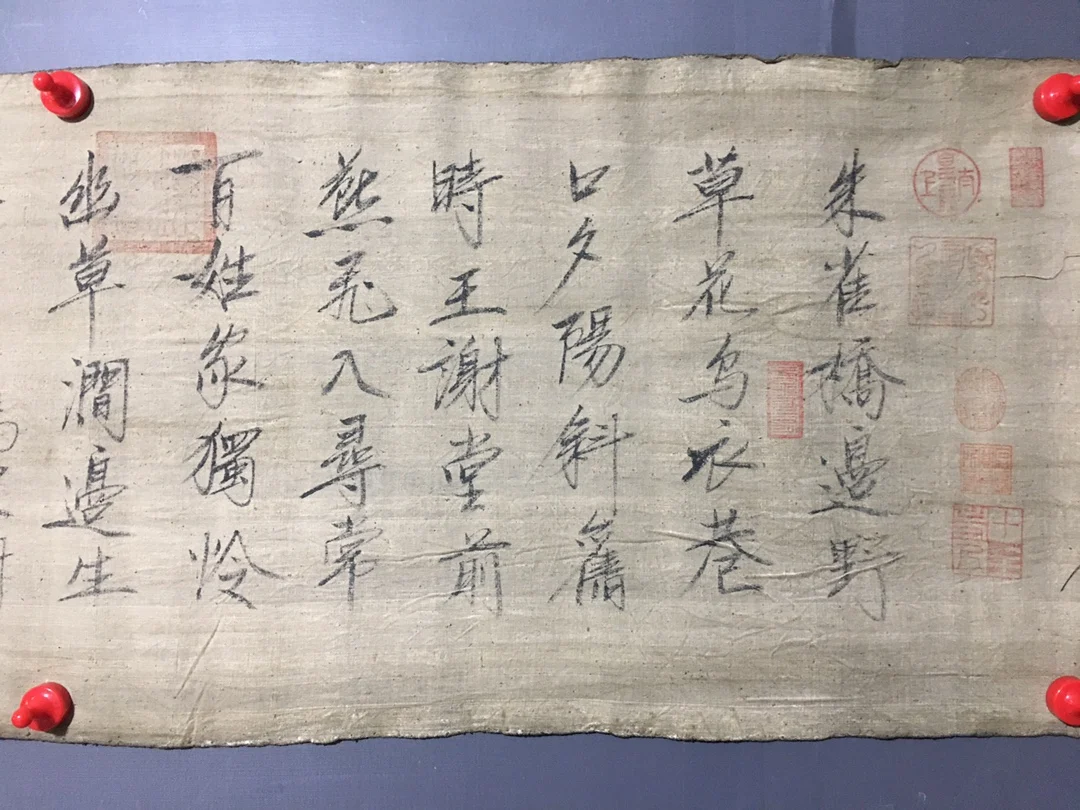 朱雀橋邊野
草花烏衣巷
口夕陽斜舊
時王謝堂前
燕飛入尋常
百姓家獨憐
幽草澗邊生